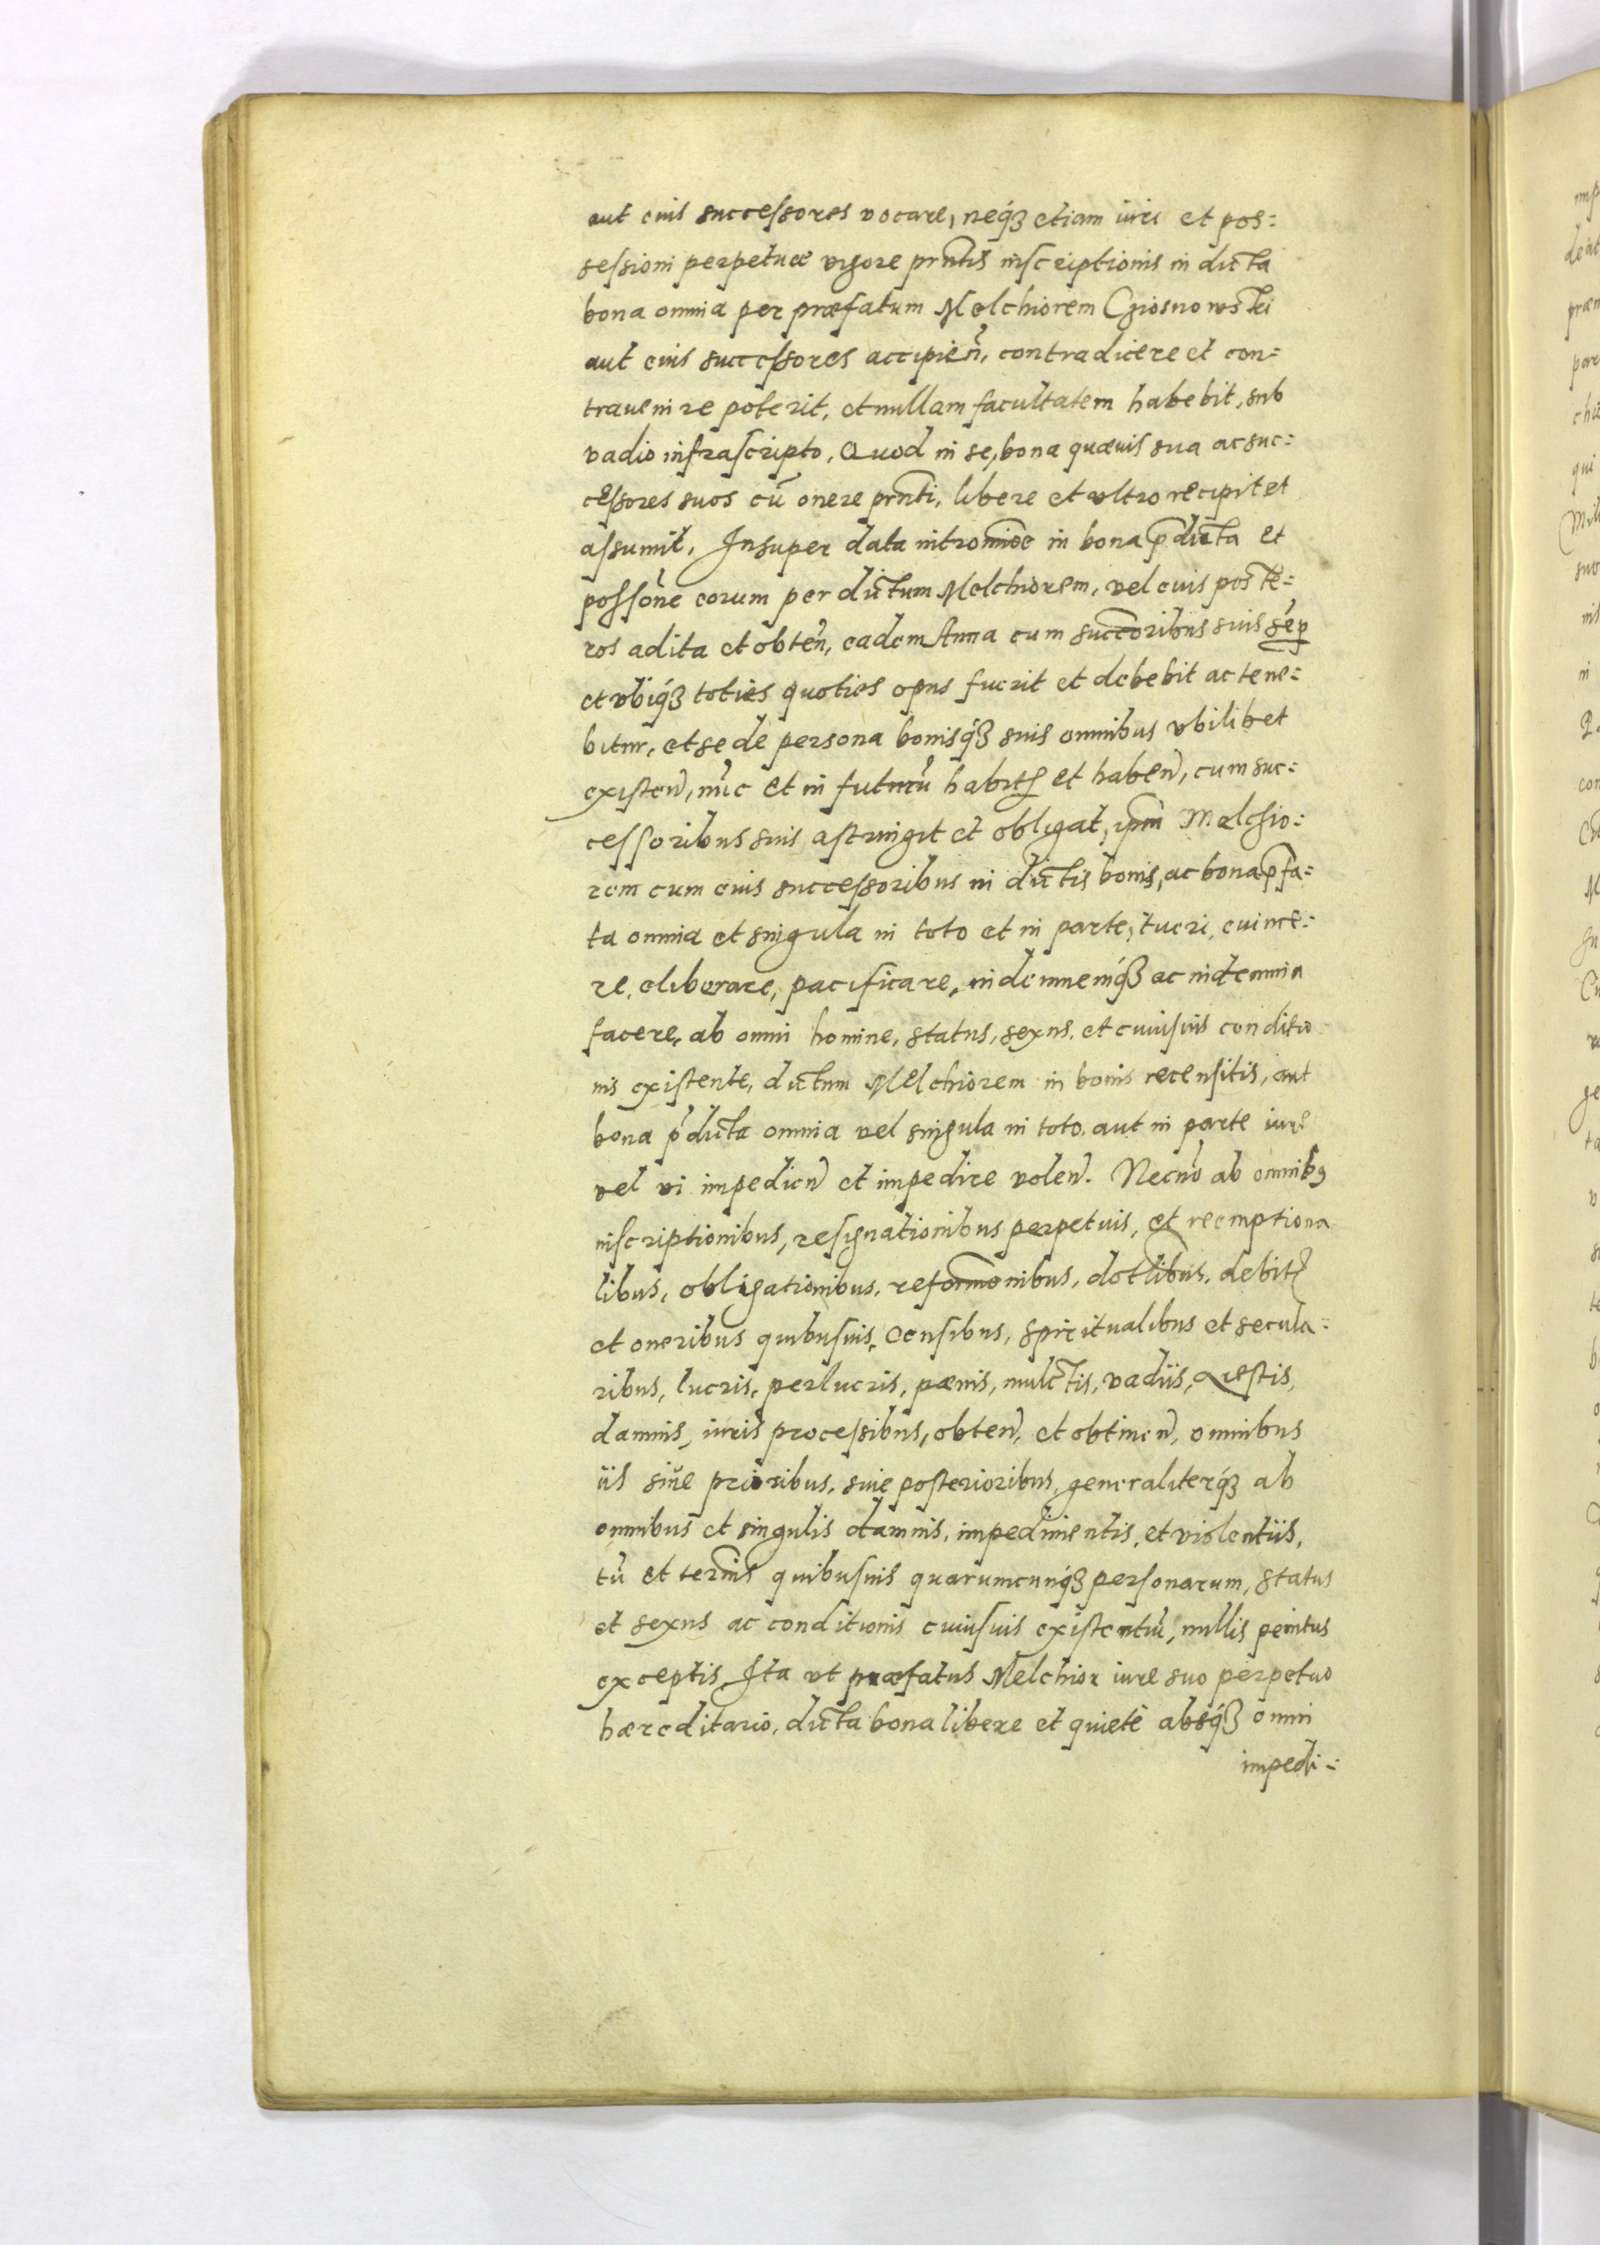 aut eius successores vocare, neq́ꝫ etiam iuri et pos:
sessioni perpetuæ vigore prn̄tis inscriptionis in dicta
bona omnia per præfatum Melchiorem Czosnowski
aut eius successores accipien̄, contradicere et con:
trauenire poterit, et nullam facultatem habebit, sub
vadio infrascripto, Quod in se, bona quæuis sua ac suc:
cessores suos cū onere prn̄ti, libere et vltro recipit et
assumit, Insuper data intromioē in bona p̄dicta et
possōne eorum per dictum Melchiorem, vel euis poste:
ros adita et obten̄, eadem Anna cum succōribus suis sēp
et vbiq́ꝫ toties quoties opus fuerit et debebit ac tene:
bitur, et se de persona bonisq́ꝫ suis omnibus vbilibet
existen̄, nūc et in futurū habitꝭ et haben̄, cum suc:
cessoribus suis astringit et obligat, ipm̄ Melchio:
rem cum eius successoribus in dictis bonis, ac bona p̄fa:
ta omnia et singula in toto et in parte, tueri, euince:
re, eliberare, pacificare, indemnemq́ꝫ ac indemnia
facere, ab omni homine, status, sexus, et cuiusuis conditio
nis existente, dictum Melchiorem in bonis recensitis, aut
bona p̄dicta omnia vel singula in toto aut in parte iure
vel vi impedien̄ et impedire volen̄. Necnō ab omnibꝰ
inscriptionibus, resignationibus perpetuis, et reemptiona
libus, obligationibus, reformōnibus, dotl̄ibus, debitꝭ
et oneribus quibusuis, censibus, spiritualibus et secula:
ribus, lucris, perlucris, pænis, mulctis, vadiis, Quæstis,
damnis, iuris processibus, obten̄, et obtinen̄, omnibus
iis siue prioribus, siue posterioribus, generaliterq́ꝫ ab
omnibus et singulis damnis, impedimentis, et violentiis,
tū et termīs quibusuis quarumcunq́ꝫ personarum, status
et sexus ac conditionis cuiusuis existentiū, nullis penitus
exceptis, Ita vt præfatus Melchior iure suo perpetuo
hæreditario, dicta bona libere et quietè absq́ꝫ omni
impedi: